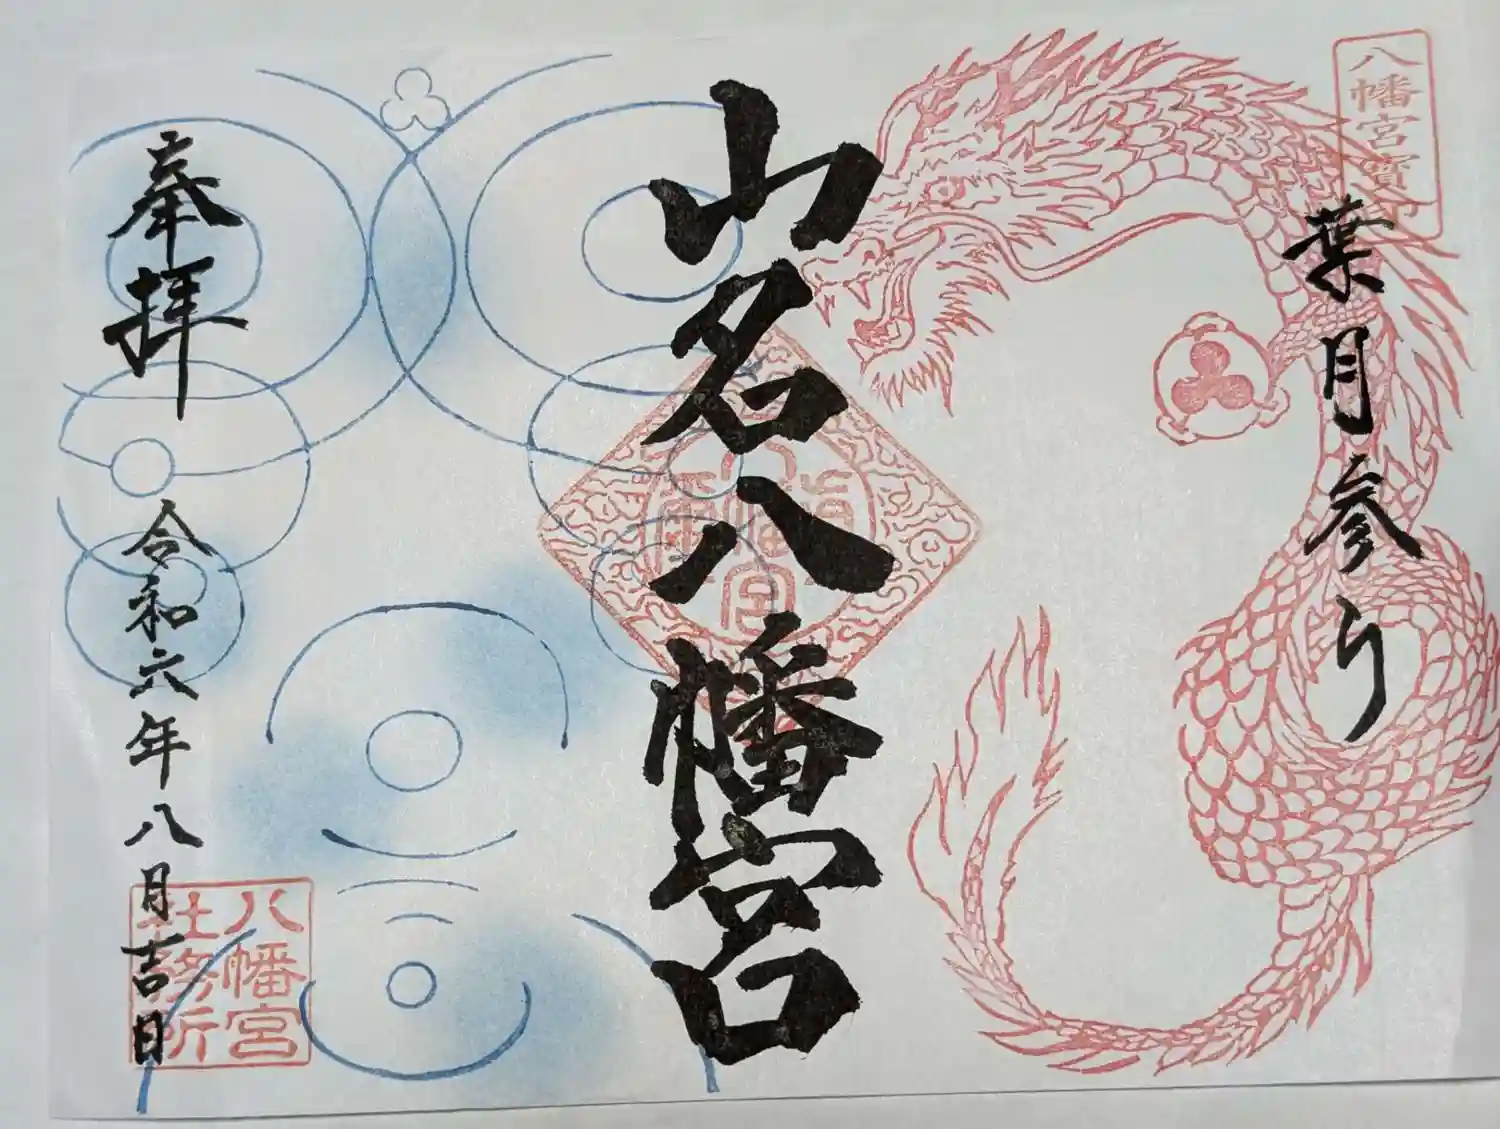 八幡宮寶印
葉月参り
山名八幡宮
奉拝
令和六年八月吉日
八幡宮
社務所